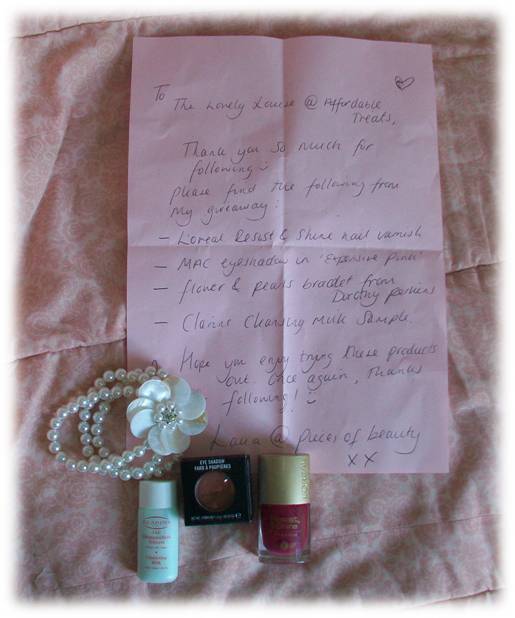 To
The Lovely Louise @ Affordable
Treats,
Thank you so much for
following
please find the following from
my giveaway:
- L'oreal Resist & Shine nail varnish
- MAC eyeshadow in 'Expensive Pink'
- flower & pearls bracelet from
Dorothy perkins
- Clarins Cleansing Milk Sample.
Hope you enjoy trying these products
out. Once again, Thanks
following!
Laura @ pieces of beauty
xx
EYE SHADOW
FARD À PAUPIÈRES
CLARINS
Resist
& Shine